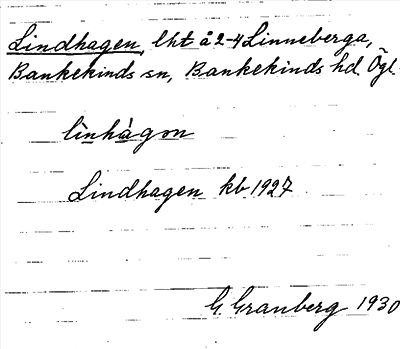 Lindhagen, lht å 2-4 Linneberga,
Bankekinds sn, Bankekinds hd. Ögl.
lìnhàgɔn
Lindhagen kb 1927
G. Granberg 1930